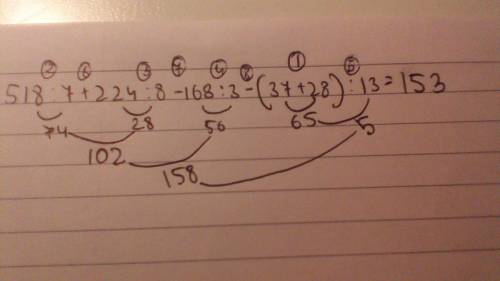 ② ⑥ ③ ⑦ ④ ⑧ ① ⑤
518:7+224:8-168:3-(37+28):13=153
74 28 56 65 5
102
158